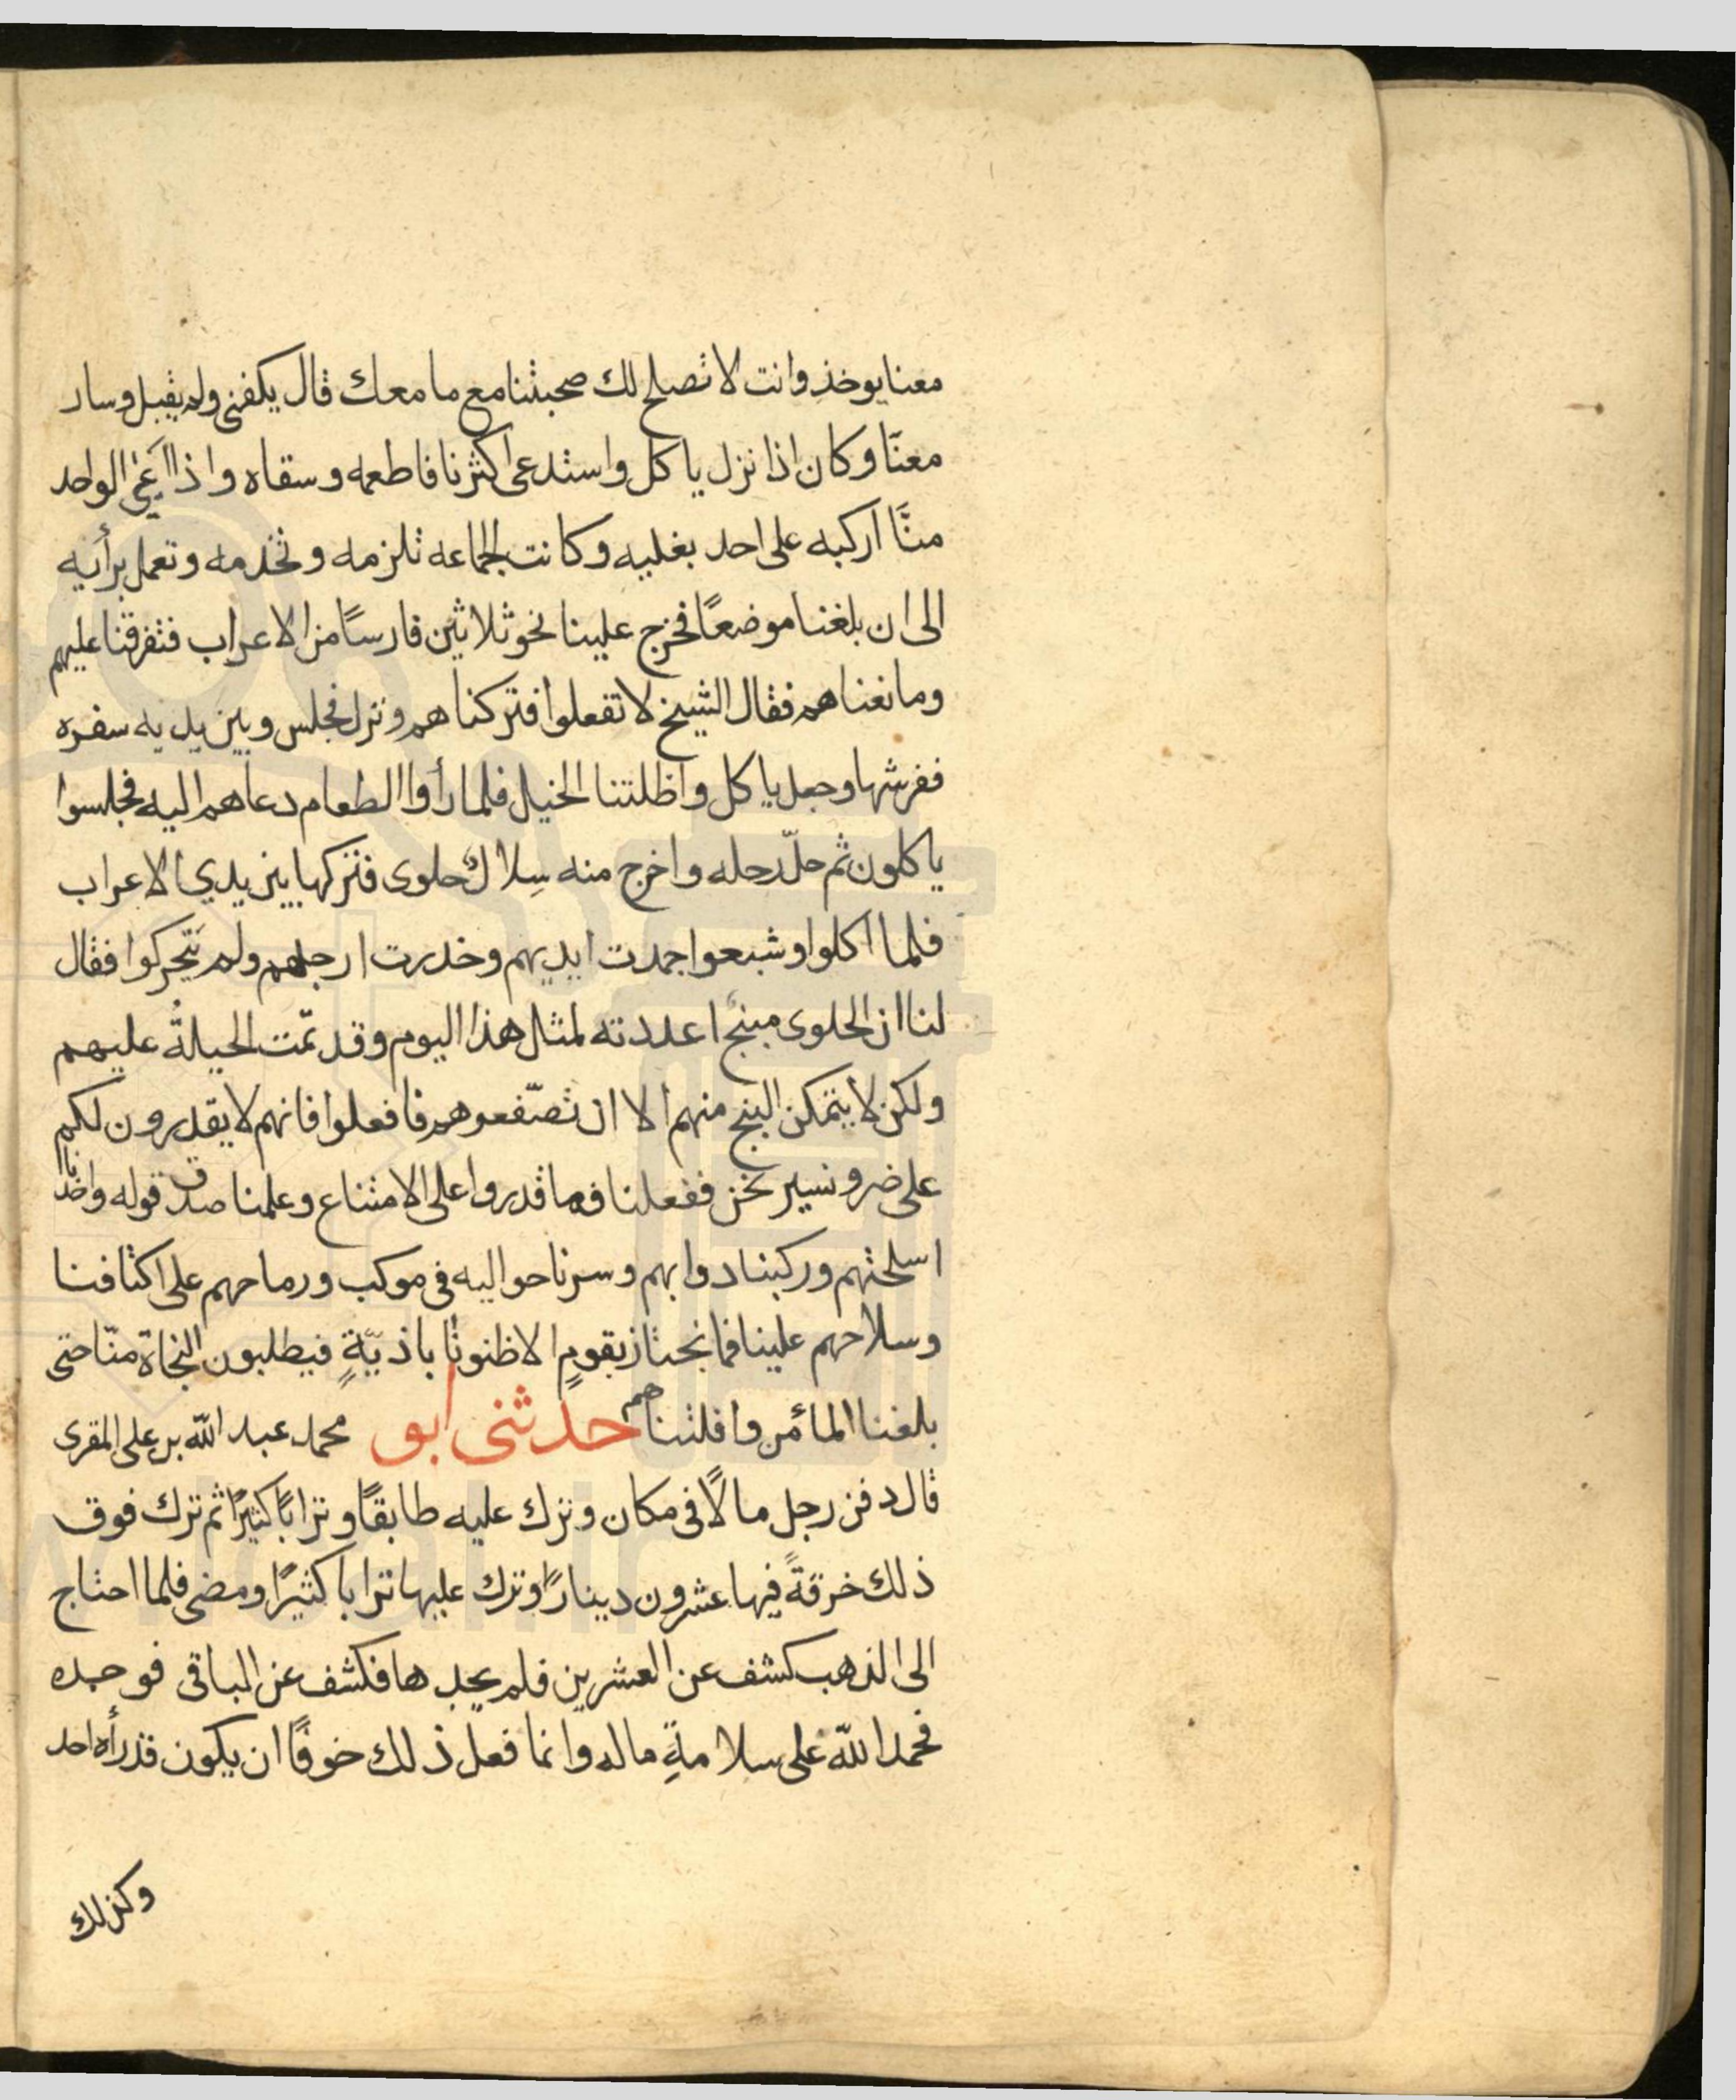 معنا يوخذ وانت لا تصلح لك صحبتنا مع ما معك قال يكفني ولم يقبل وسار
معنّا وكان اذا نزل ياكل واستدعى اكثرنا فاطعمه وسقاه واذا اعي الواحد
منّا اركبه على احد بغليه وكانت الجماعه تلزمه وتخدمه وتعمل برأيه
الى ان بلغنا موضعًا فخرج علينا نحو ثلاثين فارسًا من الاعراب فتفرقنا عليهم
ومانعناهم فقال الشيخ لا تفعلوا فتركناهم ونزل فجلس وبين يديه سفره
ففرشها وجعل ياكل واظلتنا الخيل فلما رأوا الطعام دعاهم اليه فجلسوا
ياكلون ثم حلّ رحله واخرج منه سِلالٌ حلوى فتركها بين يدي الاعراب
فلما اكلوا وشبعوا جمدت ايديهم وخدرت ارجلهم ولم يتحركوا فقال
لنا ان الحلوى مبنجٌ اعددته لمثل هذا اليوم وقد تمّت الحيلةُ عليهم
ولكن لا يتمكن البنج منهم الا ان تصّفعوهم فافعلوا فانهم لا يقدرون لكم
على ضر ونسير نحن ففعلنا فما قدروا على الامتناع وعلمنا صدق قوله واخذنا
اسلحتهم وركبنا دوابهم وسرنا حواليه في موكب ورماحهم على اكتافنا
وسلاحهم علينا فما نجتاز بقومٍ الا ظنونا باذيّةٍ فيطلبون النجاة منّا حتى
بلغنا المأمن وافلتناهم حدثنى ابو محمد عبد اللّه بن على المقرى
قال دفن رجل مالًا في مكان وترك عليه طابقًا وترابًا كثيرًا ثم ترك فوق
ذلك خرقةً فيها عشرون دينارًا وترك عليها ترابا كثيرًا ومضى فلما احتاج
الى الذهب كشف عن العشرين فلم يجدها فكشف عن الباقى فوجده
فحمد اللّه على سلامةِ ماله وانما فعل ذلك خوفًا ان يكون قد رأه احد
وكذلك